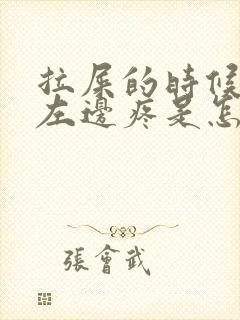 拉屎的時候
左邊疼是怎
張會武